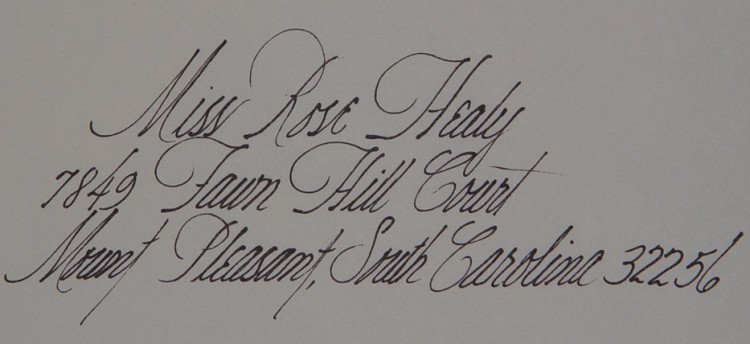 Miss Rose Healy
7849 Fawn Hill Court
Mount Pleasant, South Carolina 32256